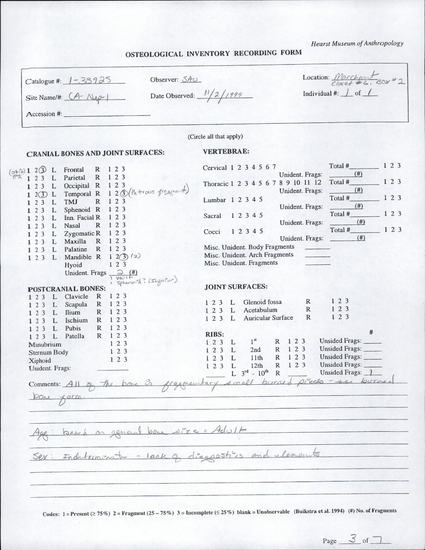 Hearst Museum of Anthropology
OSTEOLOGICAL INVENTORY RECORDING FORM
Catalogue #: 1-38925 Observer: SAU Location: Marchant
Site Name/#: CA-Nap-1 Date Observed: 11/2/1999 Individual #: 1 of 1
Accession #:
(Circle all that apply)
CRANIAL BONES AND JOINT SURFACES: VERTEBRAE:
1 2 3 L Frontal R 1 2 3
1 2 3 L Parietal R 1 2 3
1 2 3 L Occipital R 1 2 3
1 2 3 L Temporal R 1 2 3 (Petrous fragment)
1 2 3 L TMJ R 1 2 3
1 2 3 L Sphenoid R 1 2 3
1 2 3 L Inn. Facial R 1 2 3
1 2 3 L Nasal R 1 2 3
1 2 3 L Zygomatic R 1 2 3
1 2 3 L Maxilla R 1 2 3
1 2 3 L Palatine R 1 2 3
1 2 3 L Mandible R 1 2 3 (2)
Hyoid 1 2 3
Unident. Frags 2 (#)
Cervical 1 2 3 4 5 6 7 Total # 1 2 3
Unident. Frags: (#)
Thoracic 1 2 3 4 5 6 7 8 9 10 11 12 Total # 1 2 3
Unident. Frags: (#)
Lumbar 1 2 3 4 5 Total # 1 2 3
Unident. Frags: (#)
Sacral 1 2 3 4 5 Total # 1 2 3
Unident. Frags: (#)
Cocci 1 2 3 4 5 Total # 1 2 3
Unident. Frags: (#)
Misc. Unident. Body Fragments
Misc. Unident. Arch Fragments
Misc. Unident. Fragments
POSTCRANIAL BONES: JOINT SURFACES:
1 2 3 L Clavicle R 1 2 3
1 2 3 L Scapula R 1 2 3
1 2 3 L Ilium R 1 2 3
1 2 3 L Ischium R 1 2 3
1 2 3 L Pubis R 1 2 3
1 2 3 L Patella R 1 2 3
Manubrium 1 2 3
Sternum Body 1 2 3
Xiphoid 1 2 3
Unident. Frags:
1 2 3 L Glenoid fossa R 1 2 3
1 2 3 L Acetabulum R 1 2 3
1 2 3 L Auricular Surface R 1 2 3
RIBS: #
1 2 3 L 1st R 1 2 3 Unsided Frags:
1 2 3 L 2nd R 1 2 3 Unsided Frags:
1 2 3 L 11th R 1 2 3 Unsided Frags:
1 2 3 L 12th R 1 2 3 Unsided Frags:
L 3rd - 10th R Unsided Frags: 1
Comments: All of the bone is fragmentary small burned pieces - see burned
bone form.
Age: based on general bone size = Adult
Sex: Indeterminate - lack of diagnostics and elements
Codes: 1 = Present (≥ 75%) 2 = Fragment (25 – 75%) 3 = Incomplete (≤ 25%) blank = Unobservable (Buikstra et al. 1994) (#) No. of Fragments
Page 3 of 7